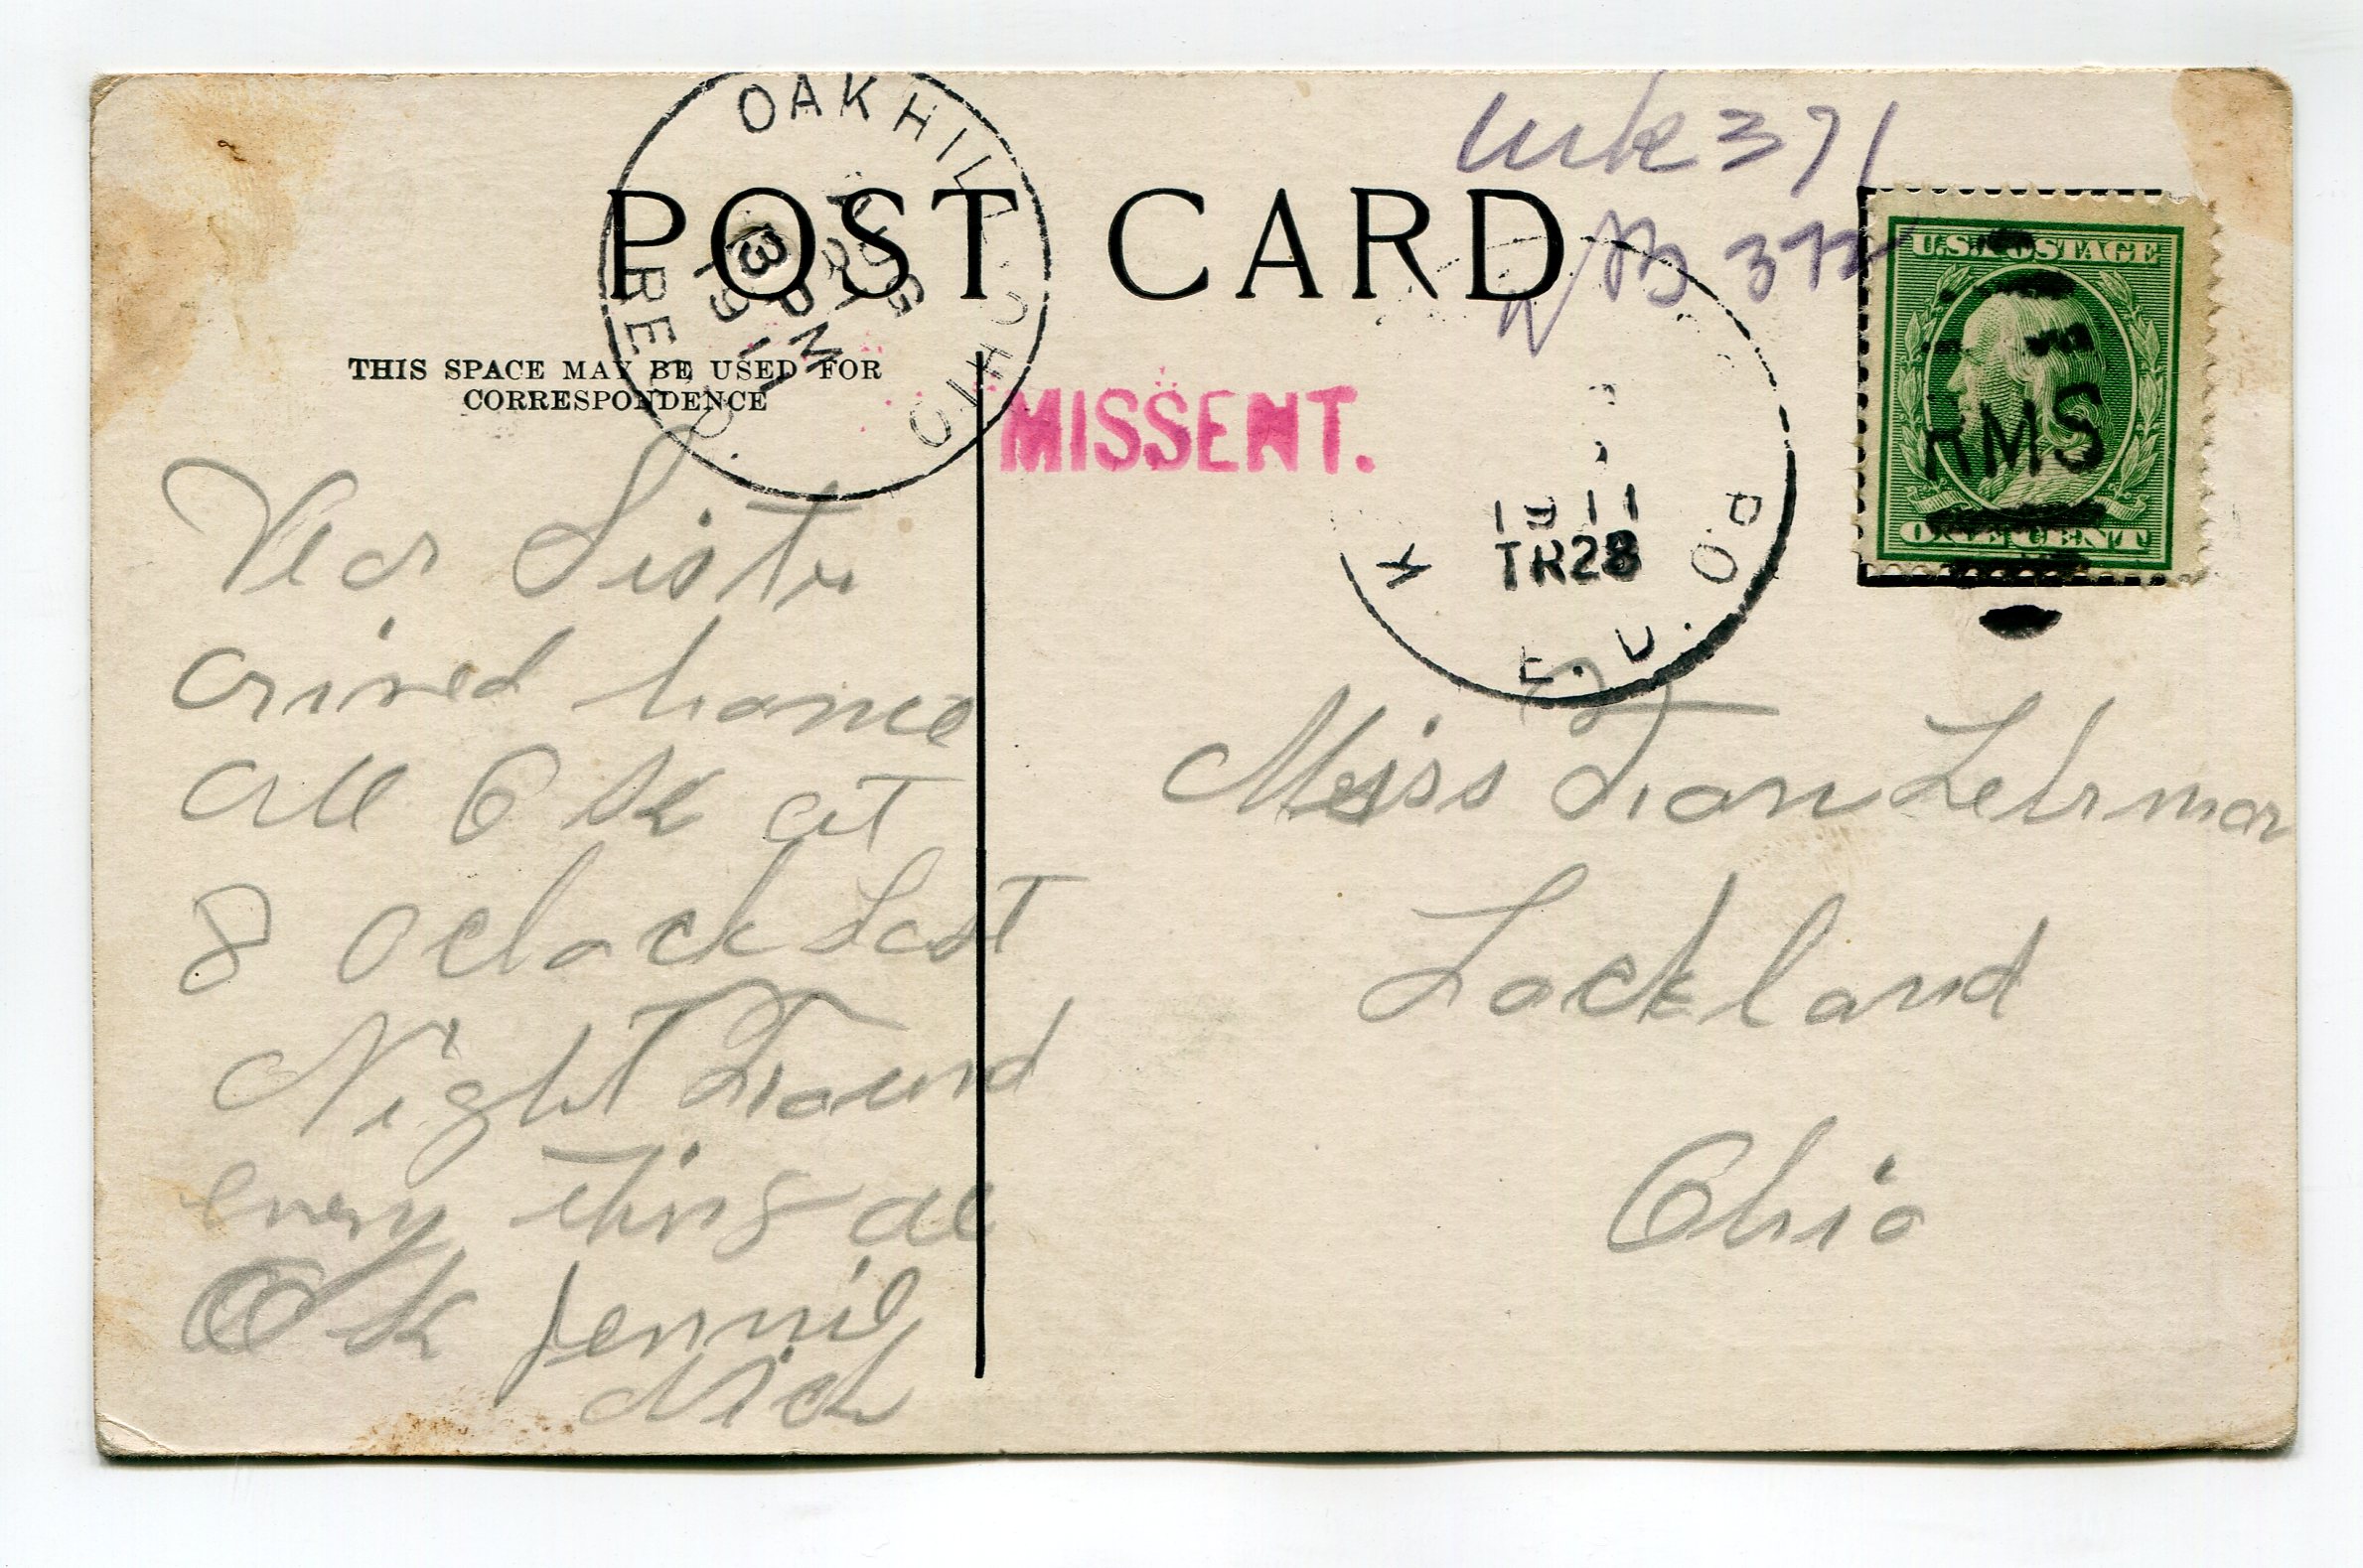 OAK HILL OHIO
AUG
21
3 PM
1911
REC'D.
POST CARD
371
372
U.S. POSTAGE
RMS
ONE CENT
THIS SPACE MAY BE USED FOR
CORRESPONDENCE
MISSENT.
1911
TR28
R.P.O.
Dear Sister
arived home
all O K at
8 Oclock Last
Night Found
every thing all
O k Jennie
Nick
Miss Fran Lehrman
Lockland
Ohio